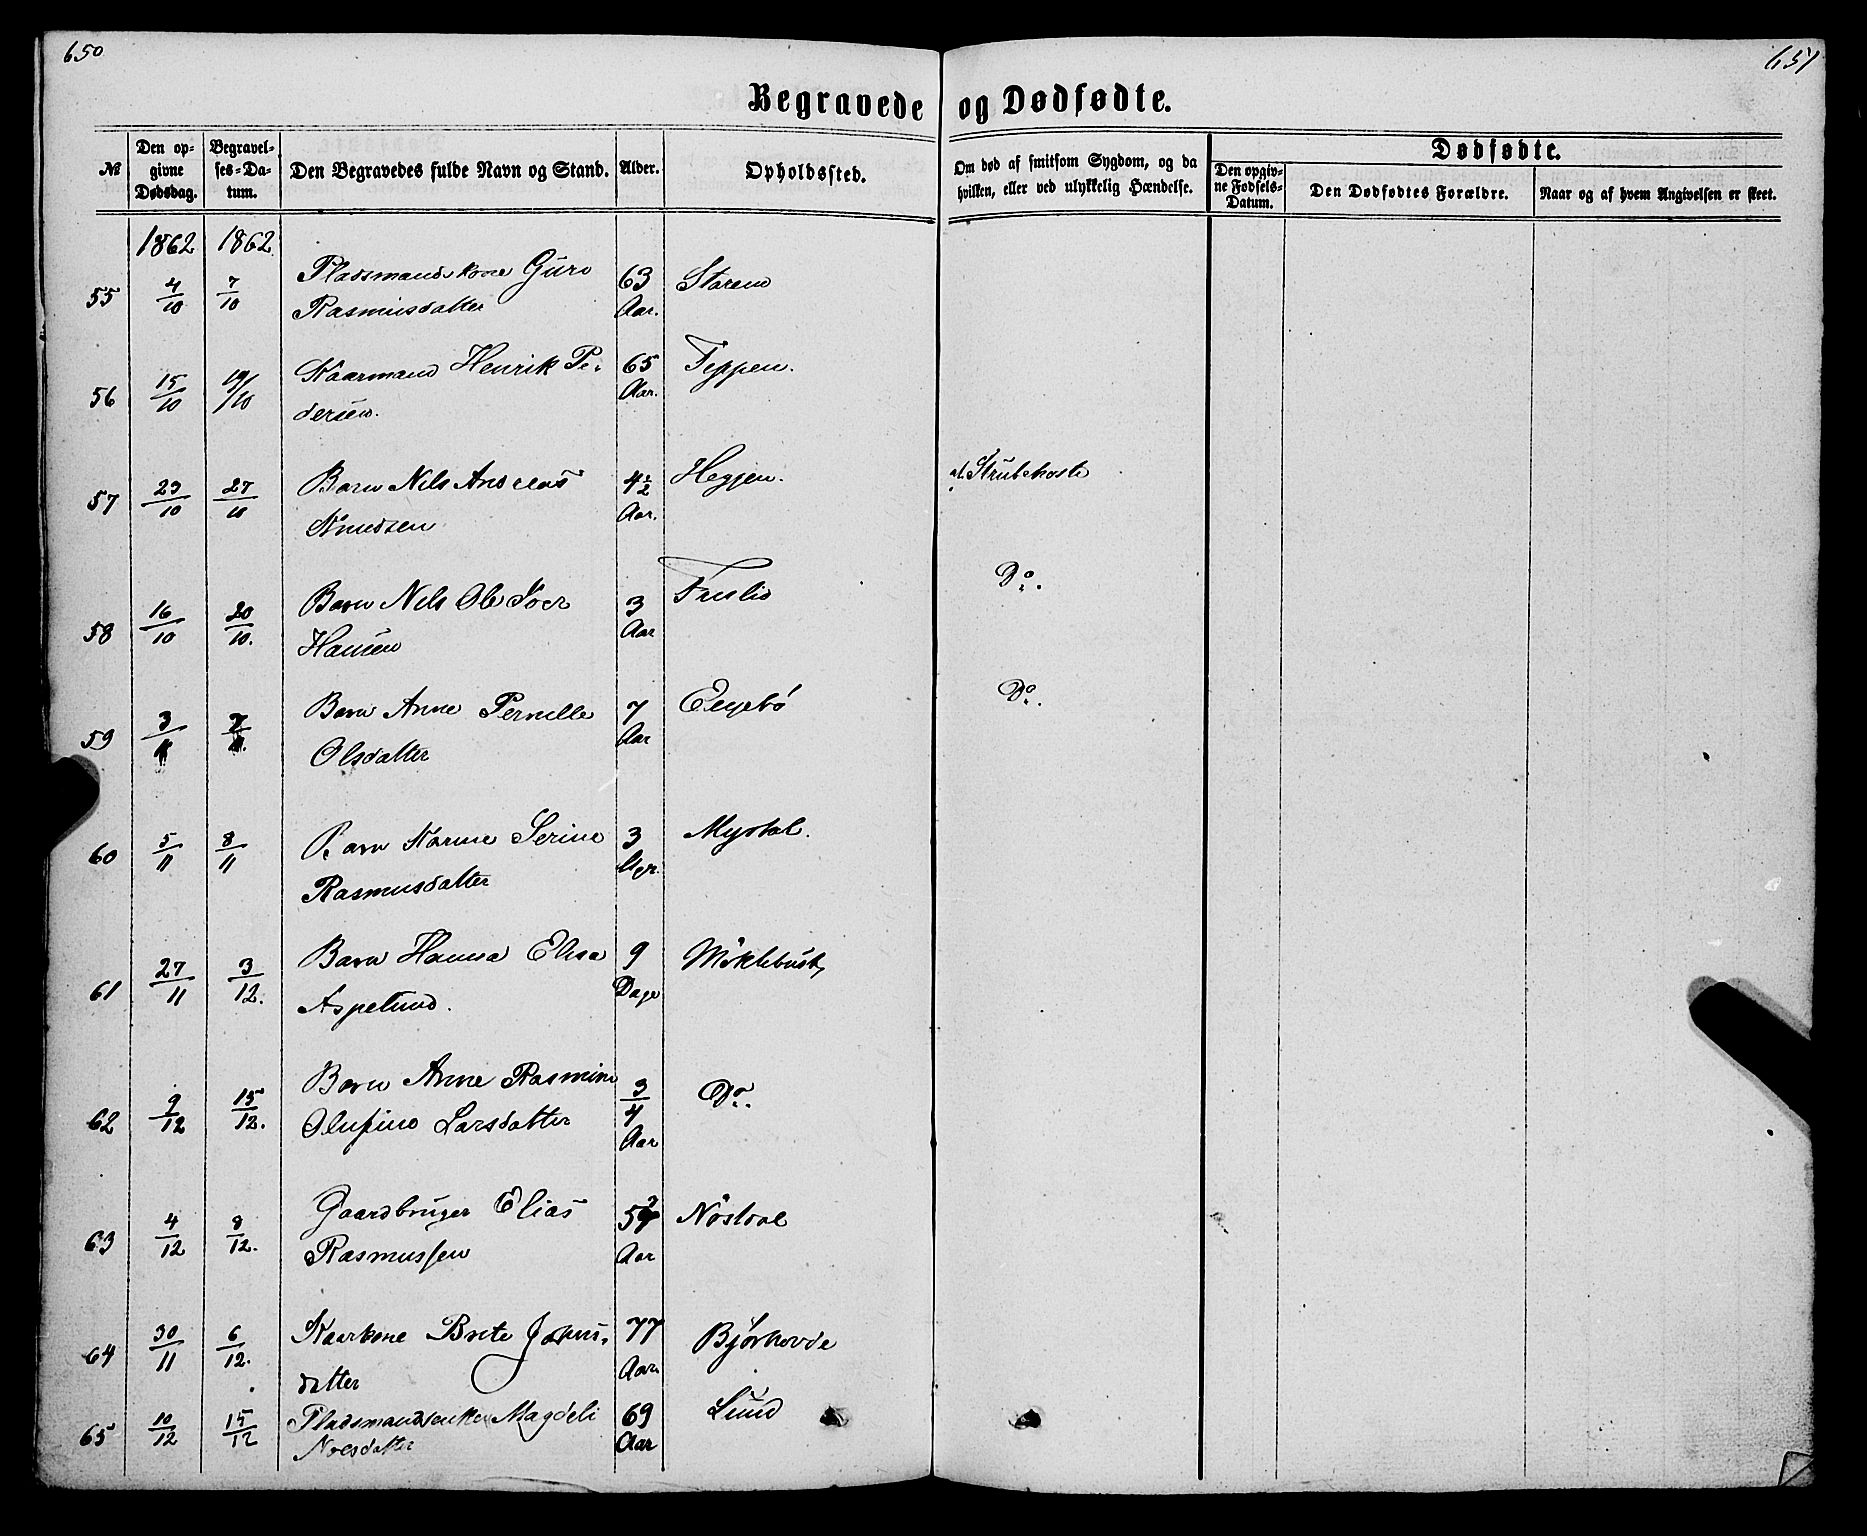 650
651
Begravede og Dødfødte.
№
Den op-
givne
Dødsdag.
Begravel-
ses-Da-
tum.
Den Begravedes fulde Navn og Stand.
Alder.
Opholdssted.
Om død af smitsom Sygdom, og da
hvilken, eller ved ulykkelig Hændelse.
Dødfødte.
Den opgiv-
ne Fødsels-
Datum.
Den Dødfødtes Forældre.
Naar og af hvem Angivelsen er skeet.
1862 1862
55 4/10 7/10 Pladsmandskone Guro
Rasmusdatter
63
Aar.
Staren
56 15/10 19/10 Kaarmand Henrik Pe-
dersen.
65
Aar.
Teppen.
57 23/10 27/10 Barn Nils Andreas
Knudsen
4½
Aar.
Hegjen.
af Strubehoste
58 16/10 20/10. Barn Nils Ole
Hansen
3
Aar
Do.
59 3/11 7/11. Barn Anne Pernille
Olsdatter
7
Aar
Eegebö
Do.
60 5/11 8/11 Barn Karine Serine
Rasmusdatter
3
Ugr.
Myrtal.
61 27/11 3/12. Barn Hanna Elisa
Aspelund.
9
Dage
Möklebust,
62 9/12 15/12. Barn Anne Rasmine
Olufine Larsdatter
3/4
Aar
Do.
63 4/12 8/12. Gaardbruger Elias
Rasmussen
Aar
Nöstdal
64 30/11 6/12. Kaarkone Brite Johns-
datter
77
Aar
Björhovde
65 10/12 15/12 Pladsmandsenke Magdeli
Nilsdatter
69
Aar
Lund